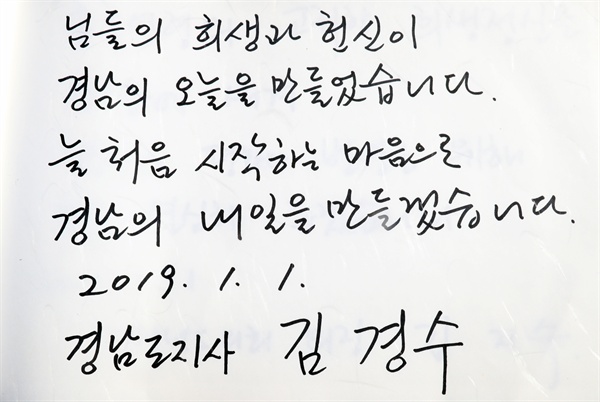 님들의 희생과 헌신이
경남의 오늘을 만들었습니다.
늘 처음 시작하는 마음으로
경남의 내일을 만들겠습니다.
2019. 1. 1.
경남도지사 김경수